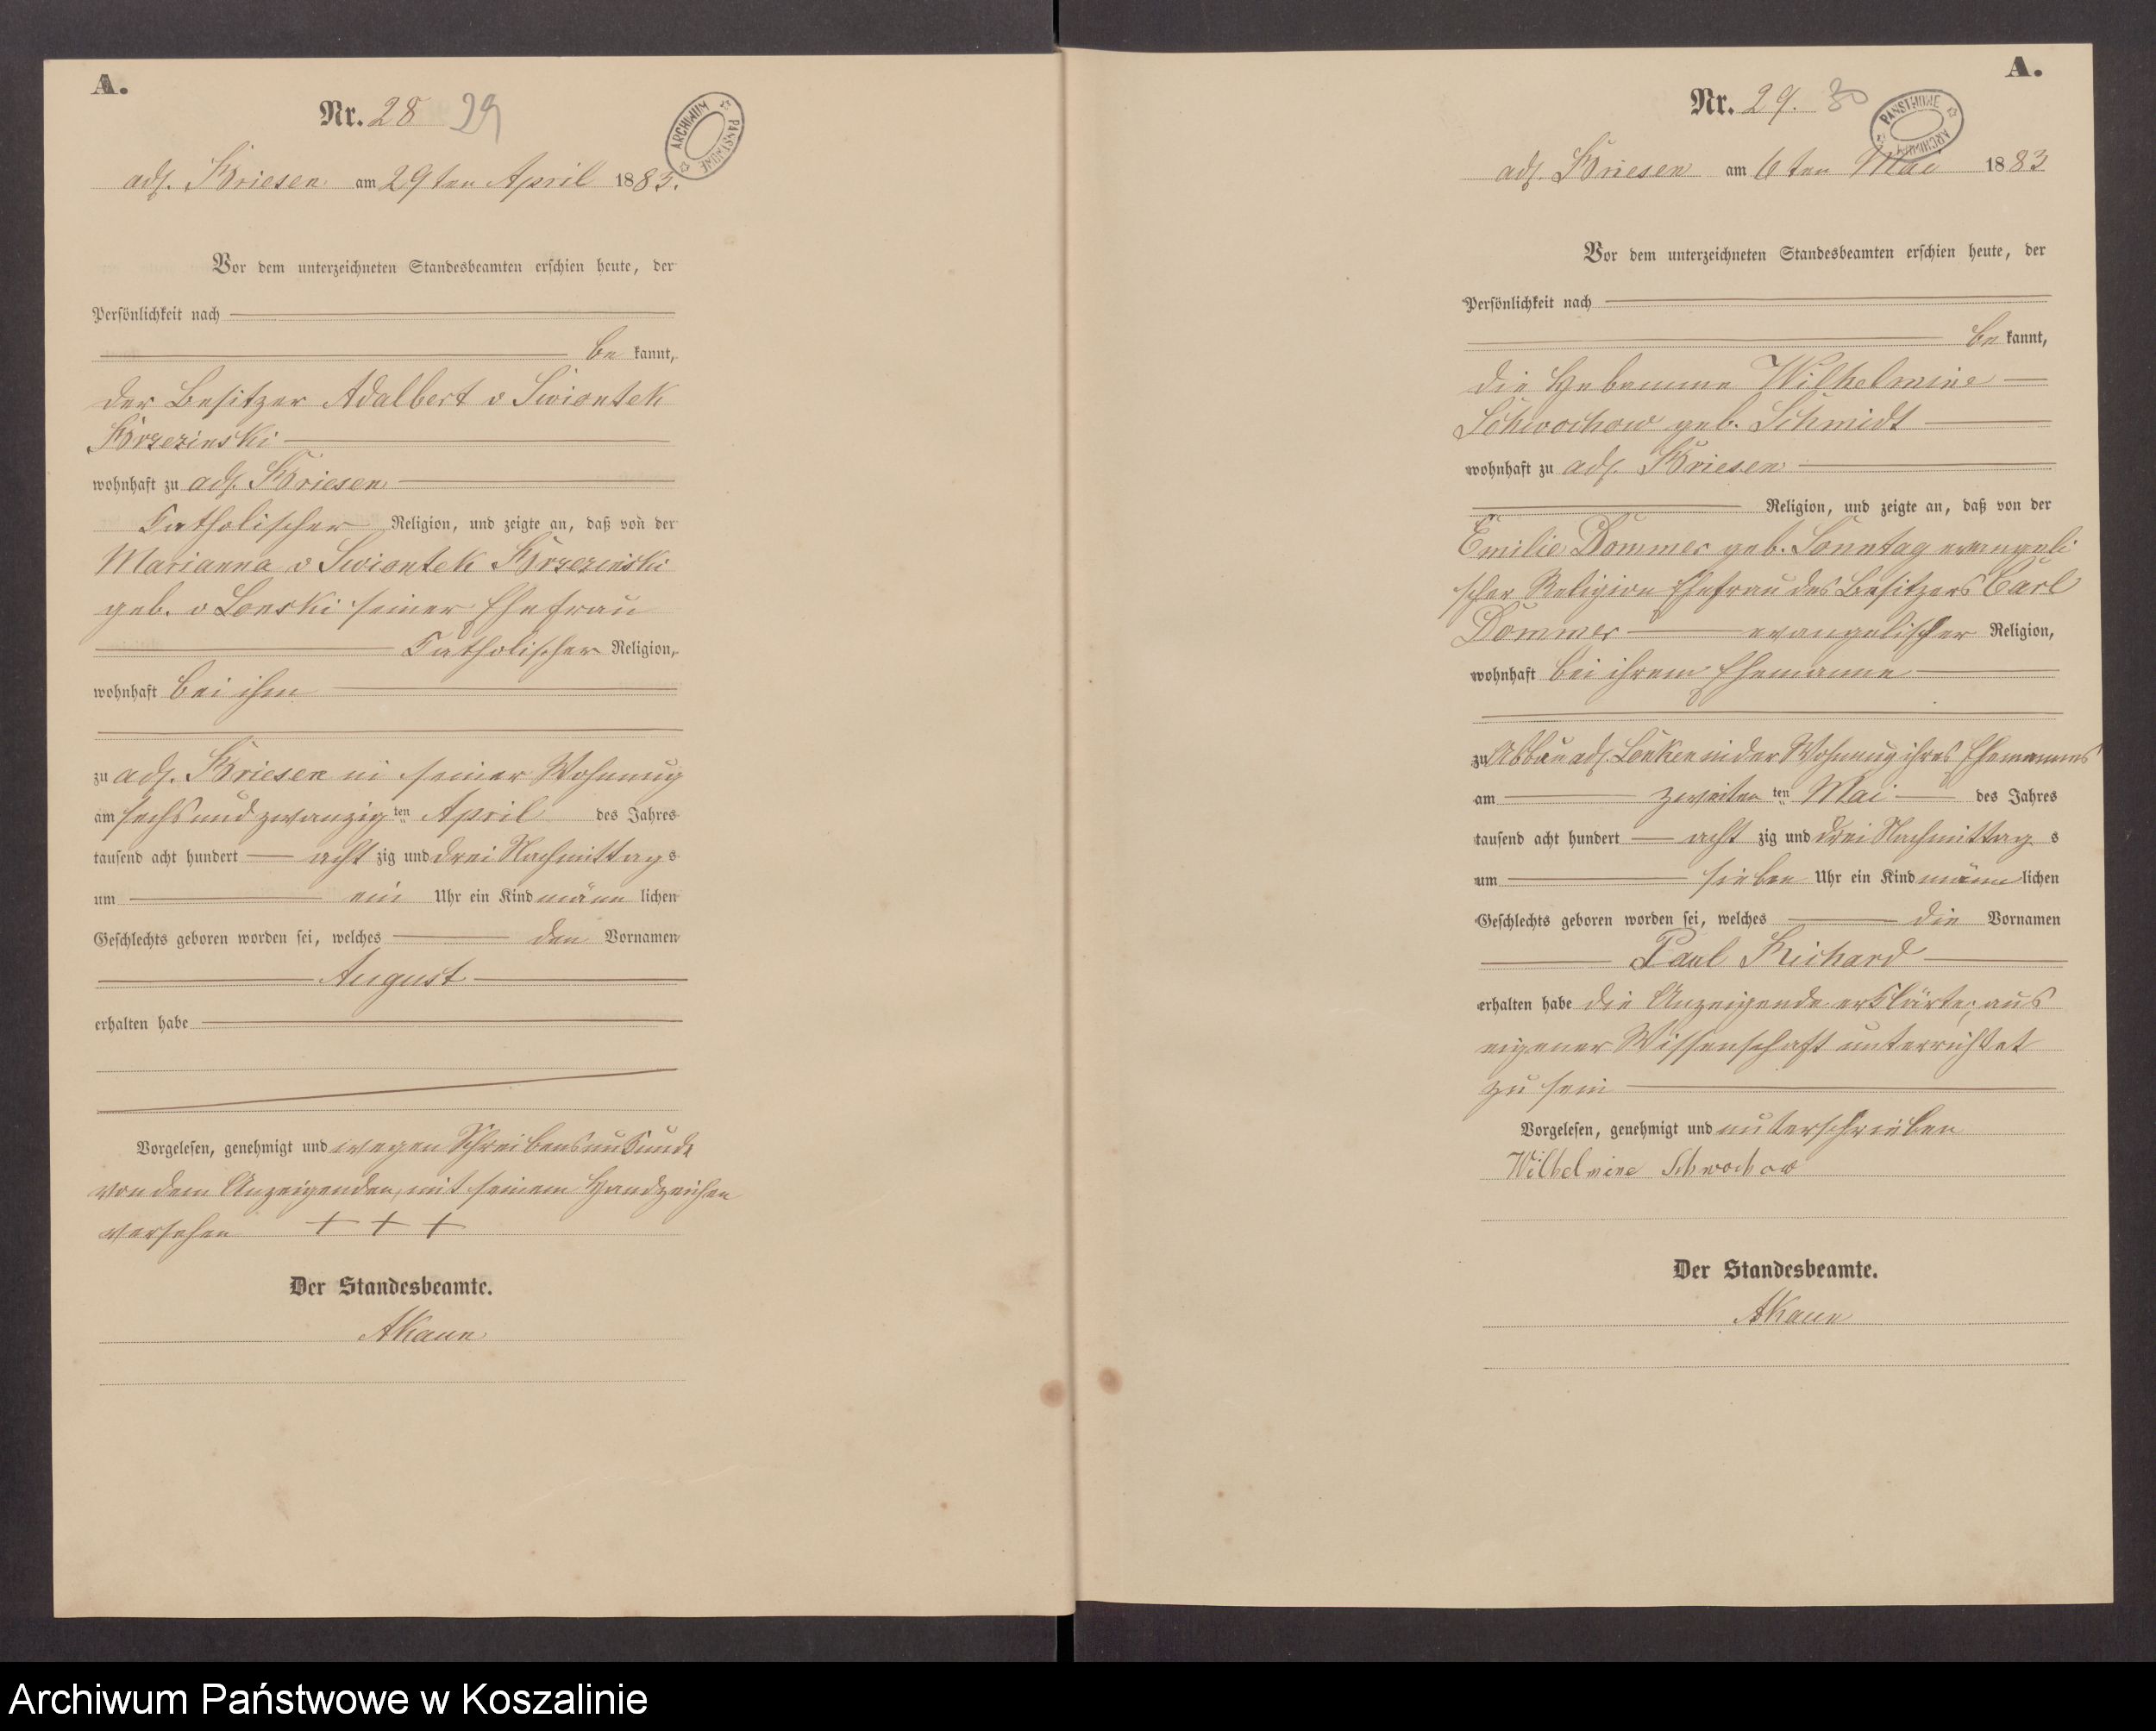 A.
Nr. 28 29
ARCHIWUM PAŃSTWOWE
adl. Briesen am 29ten April 1883.
Vor dem unterzeichneten Standesbeamten erschien heute, der
Persönlichkeit nach
be kannt,
der Besitzer Adalbert v Swiontek
Brzezinski
wohnhaft zu adl. Briesen
katholischer Religion, und zeigte an, daß von der
Marianna v Swiontek Brzezinski
geb. v Lonski seiner Ehefrau
katholischer Religion,
wohnhaft bei ihm
zu adl. Briesen in seiner Wohnung
am sechsundzwanzig ten April des Jahres
tausend acht hundert acht zig und drei Nachmittags
um ein Uhr ein Kind männ lichen
Geschlechts geboren worden sei, welches den Vornamen
August
erhalten habe
Vorgelesen, genehmigt und wegen Schreibensunkunde
von dem Anzeigenden, mit seinem Handzeichen
versehen + + +
Der Standesbeamte.
AKaun
A.
Nr. 29. 30
PAŃSTWOWE ARCHIWUM
adl. Briesen am 6ten Mai 1883
Vor dem unterzeichneten Standesbeamten erschien heute, der
Persönlichkeit nach
be kannt,
die Hebamme Wilhelmine
Schwochow geb. Schmidt
wohnhaft zu adl. Briesen
Religion, und zeigte an, daß von der
Emilie Dommer geb. Sonntag evangeli
scher Religion Ehefrau des Besitzers Carl
Dommer evangelischer Religion,
wohnhaft bei ihrem Ehemanne
zu Abbau adl. Lonken in der Wohnung ihres Ehemannes
am zweiten ten Mai des Jahres
tausend acht hundert acht zig und drei Nachmittag s
um sieben Uhr ein Kind männ lichen
Geschlechts geboren worden sei, welches die Vornamen
Paul Richard
erhalten habe die Anzeigende erklärte, aus
eigener Wissenschaft unterrichtet
zu sein
Vorgelesen, genehmigt und unterschrieben
Wilhelmine Schwochow
Der Standesbeamte.
AKaun
Archiwum Państwowe w Koszalinie